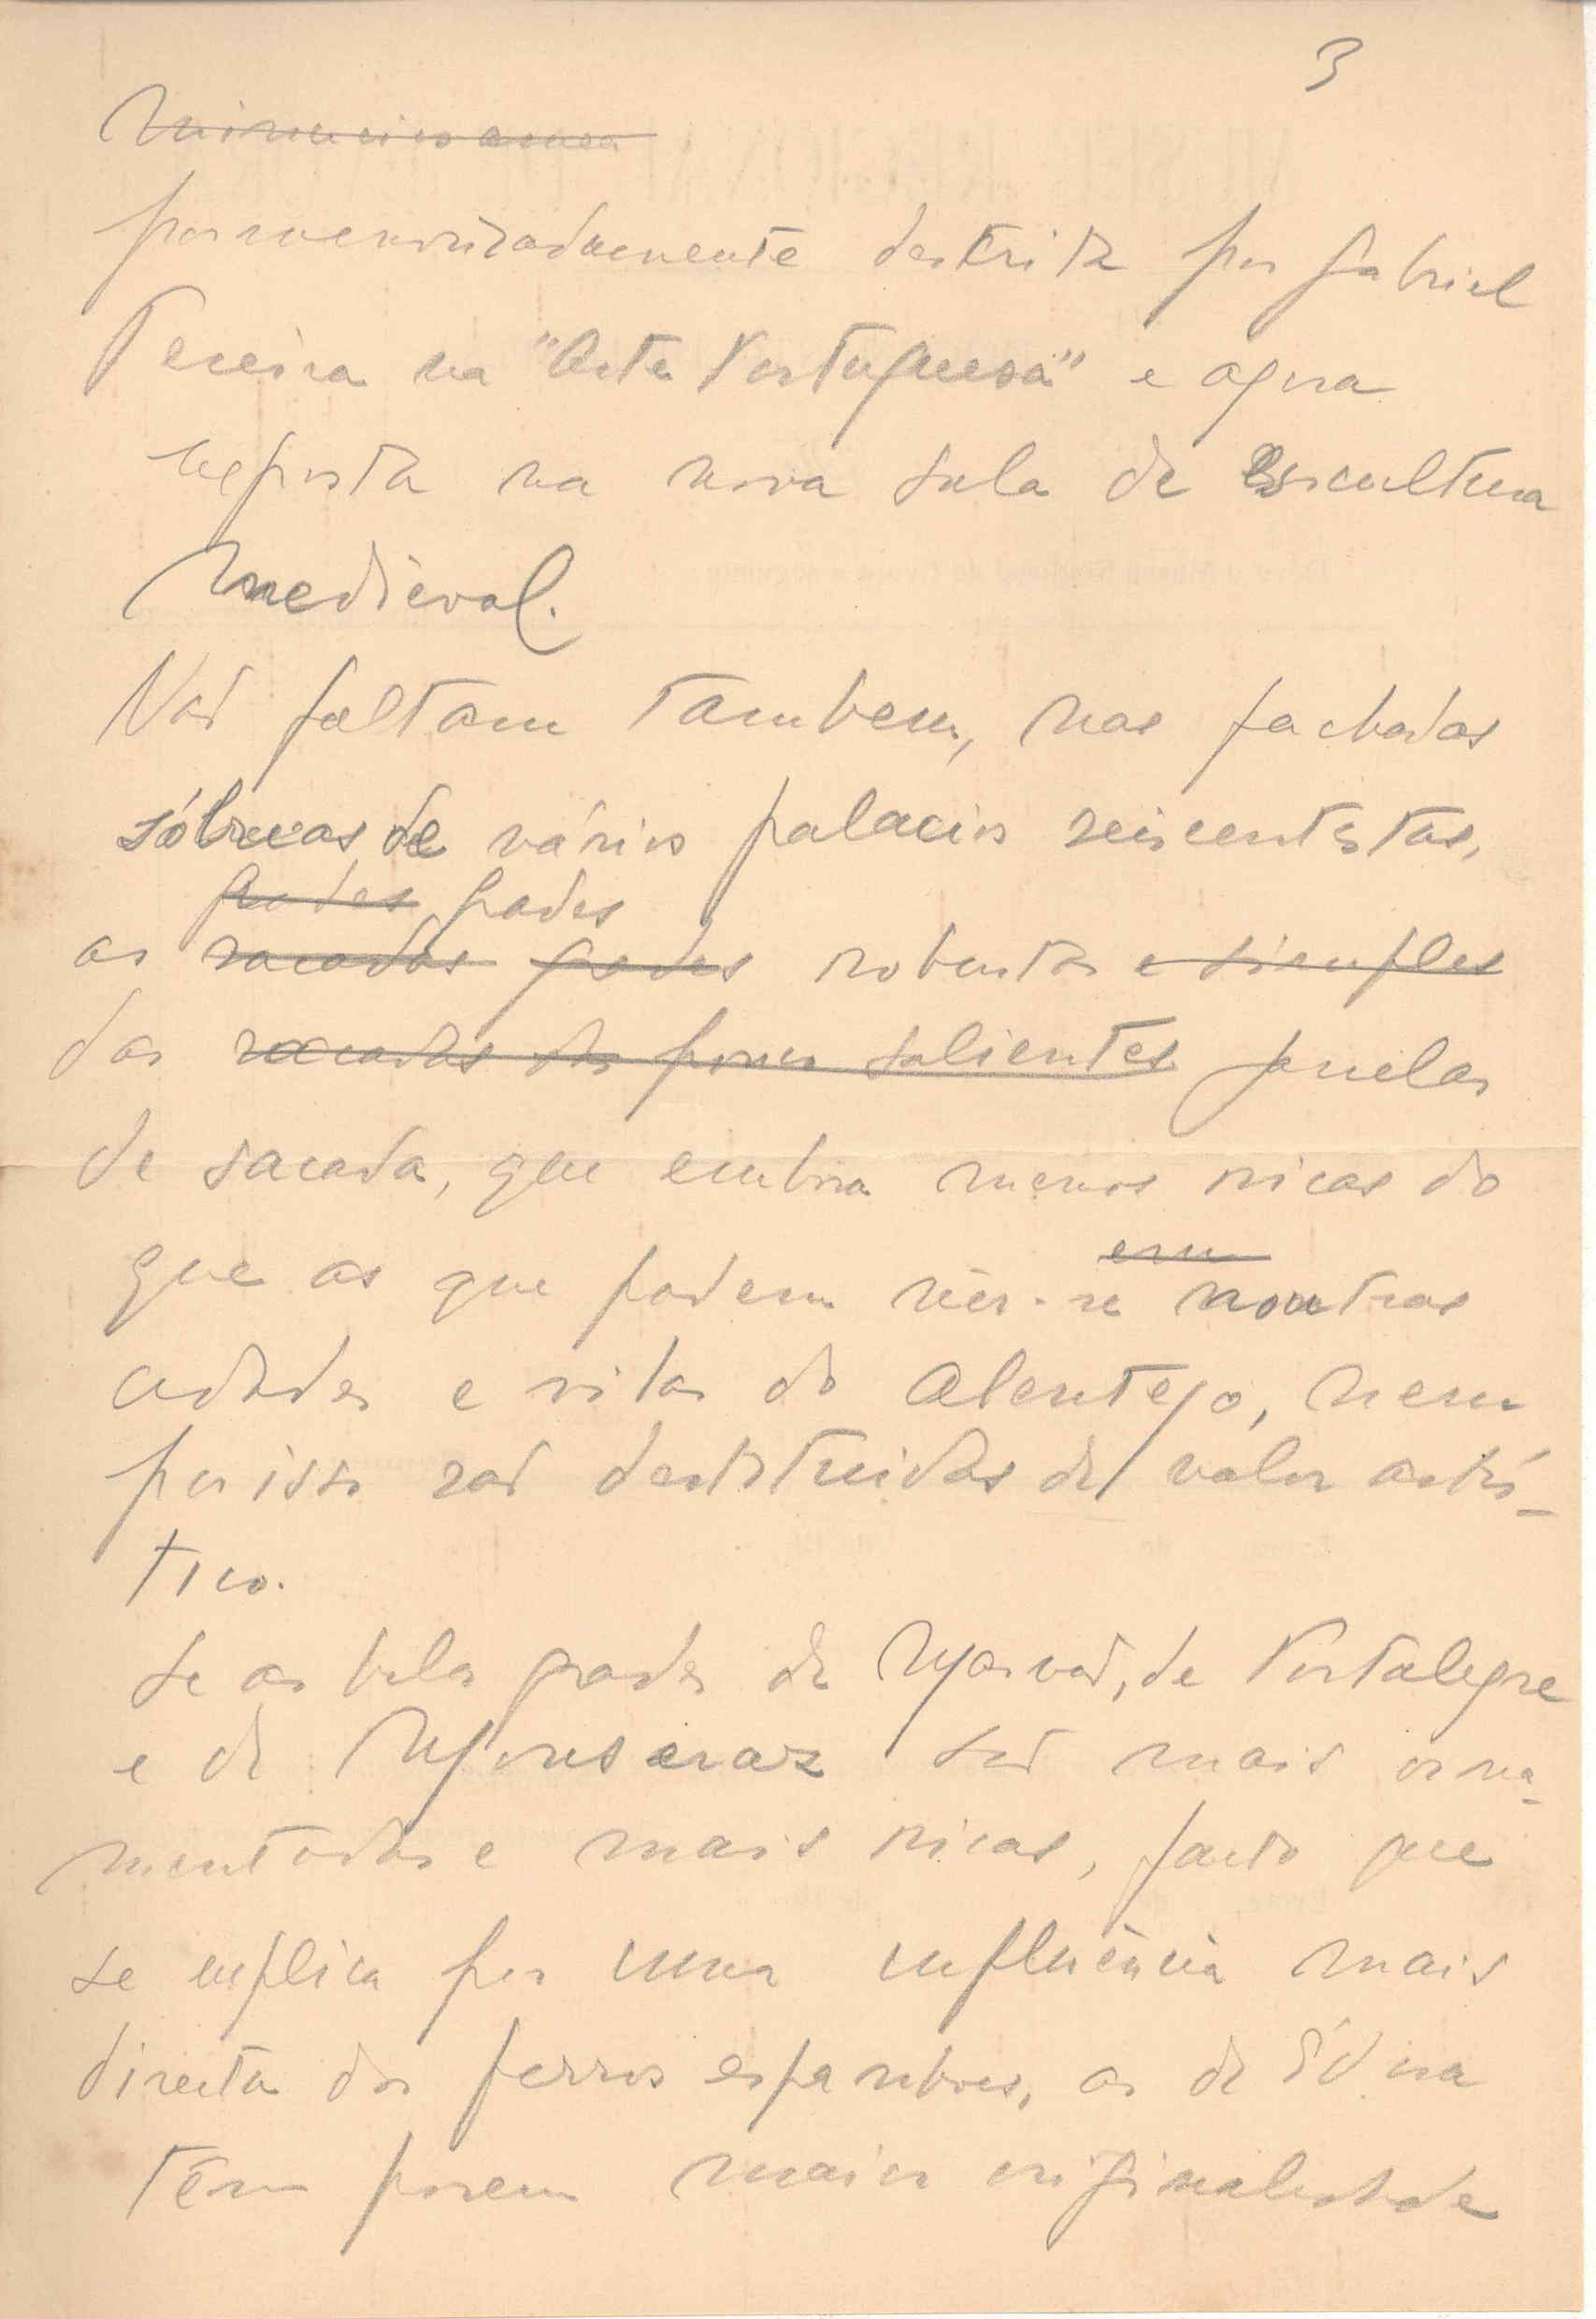 3
Minuciosamen
pormenorizadamente descrita por Gabriel
Pereira na "Arte Portuguesa" e agora
reposta na nova sala de Escultura
Medieval.
Não faltam tambem, nas fachadas
sóbrias de vários palacios seiscentistas,
grades grades
as sacadas grades robustas e simples
das sacadas das pouco salientes janelas
de sacada, que embora menos ricas do
em
que as que podem vêr-se noutras
cidades e vilas do Alentejo, nem
por isso são destituidas de valor artís-
tico.
Se as belas grades de Marvão, de Portalegre
e de Monsaraz são mais orna-
mentadas e mais ricas, facto que
se explica por uma influência mais
directa dos ferros espanhoes, as de Évora
têm porem maior originalidade